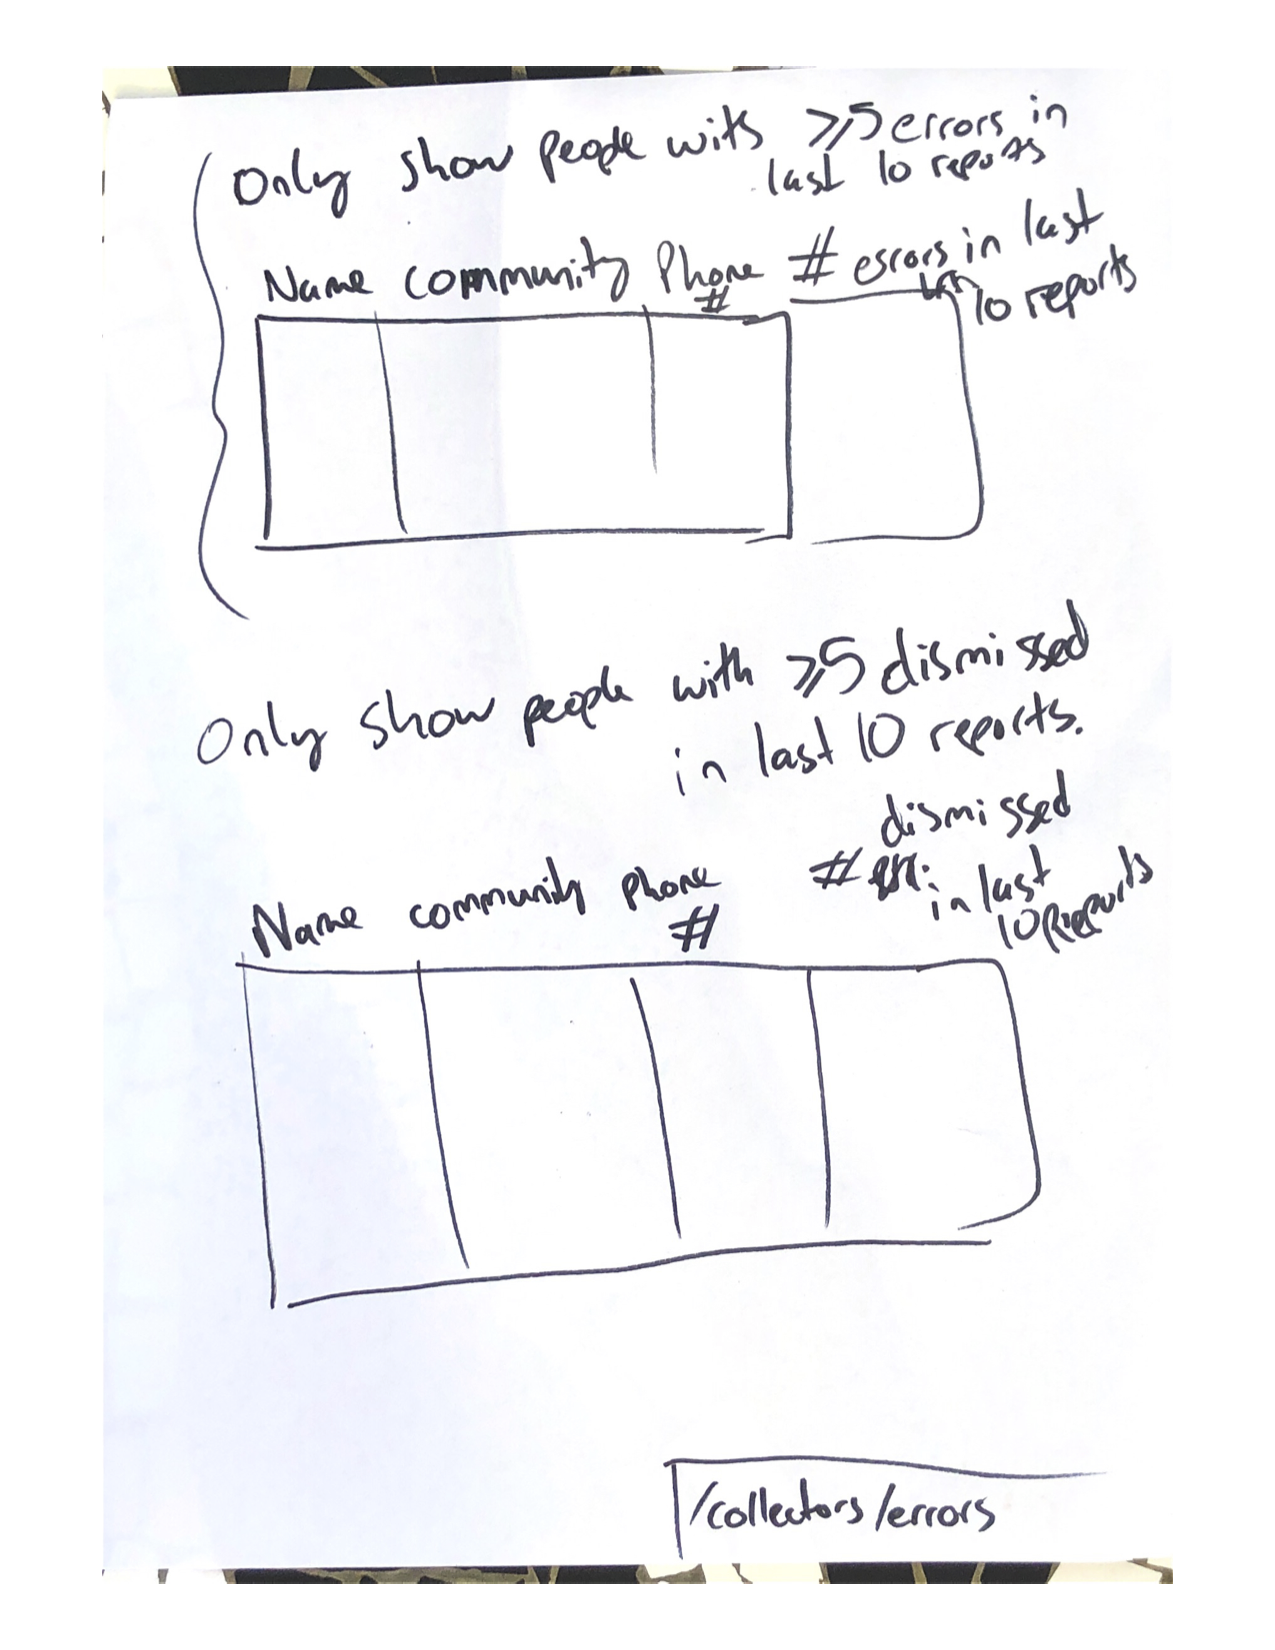 Only show people with ⩾5 errors in
last 10 reports
Name community Phone # # errors in last
10 reports
Only show people with ⩾5 dismissed
in last 10 reports.
dismissed
Name community phone # # in last
10 reports
/collectors/errors